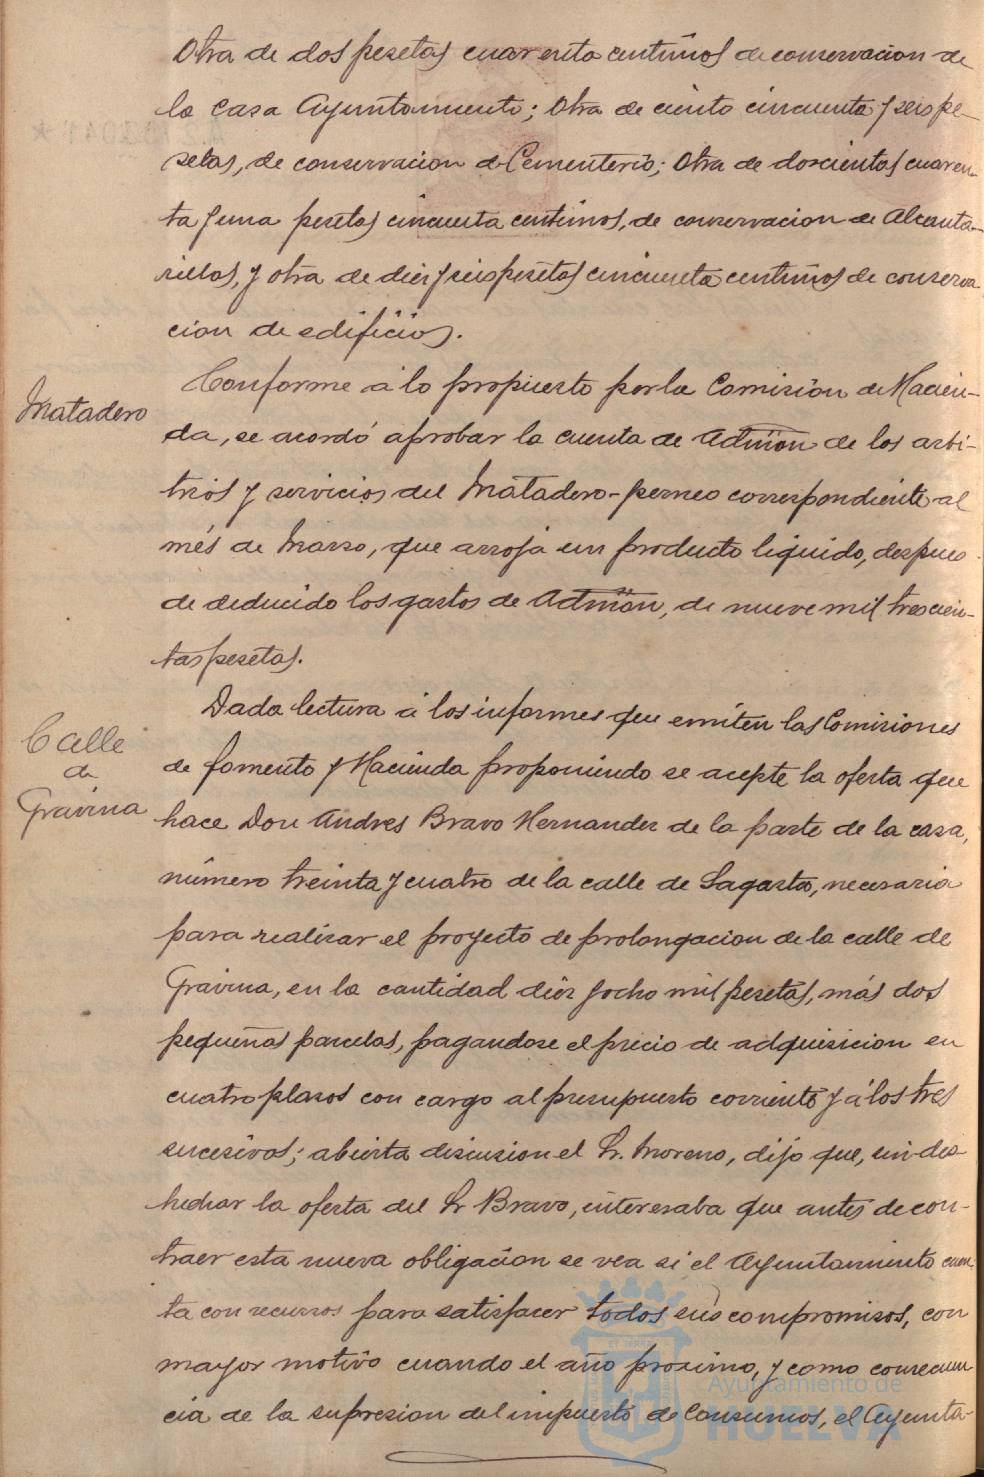 Otra de dos pesetas cuarenta centimos de conservacion de
la Casa Ayuntamiento; Otra de ciento cincuenta y seis pe-
setas, de conservacion de Cementerio; Otra de doscientas cuaren-
ta y una pesetas cincuenta centimos, de conservacion de Alcanta-
rillas, y otra de diez y seis pesetas cincuenta centimos de conserva-
cion de edificios.
Matadero
Conforme á lo propuesto por la Comision de Hacien-
da, se acordó aprobar la cuenta de Admon de los arbi-
trios y servicios del Matadero-perneo correspondiente al
més de Marzo, que arroja un producto liquido, despues
de deducido los gastos de Admon, de nueve mil trescien-
tas pesetas.
Calle
de
Gravina
Dada lectura á los informes que emiten las Comisiones
de fomento y Hacienda proponiendo se acepte la oferta que
hace Don Andres Bravo Hernandez de la parte de la casa,
número treinta y cuatro de la calle de Sagasta, necesaria
para realizar el proyecto de prolongacion de la calle de
Gravina, en la cantidad diez y ocho mil pesetas, más dos
pequeñas parcelas, pagandose el precio de adquisicion en
cuatro plazos con cargo al presupuesto corriente y á los tres
sucesivos; abierta discusion el Sr. Moreno, dijo que, sin des-
hechar la oferta del Sr Bravo, interesaba que antes de con-
traer esta nueva obligacion se vea si el Ayuntamiento cuen-
ta con recursos para satisfacer todos sus compromisos, con
mayor motivo cuando el año proximo, y como consecuen-
cia de la supresion del impuesto de Consumos, el Ayunta-
Ayuntamiento de
HUELVA